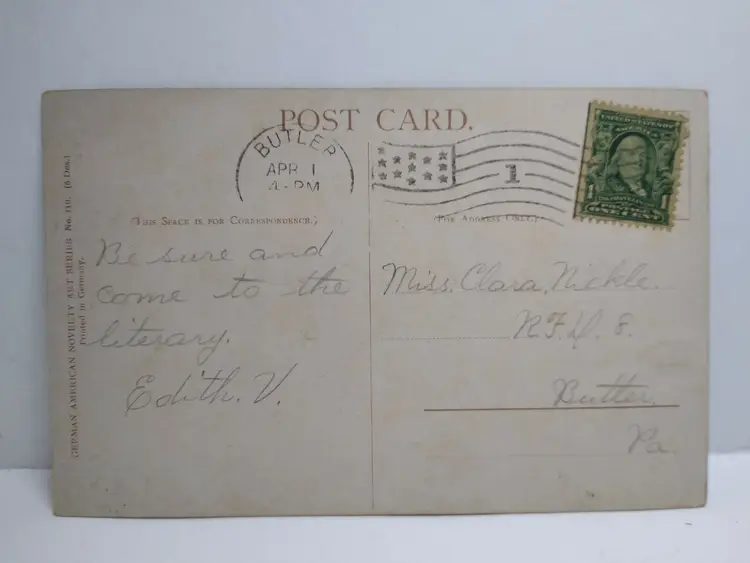 POST CARD.
BUTLER
APR 1
4-PM
1
UNITED STATES OF
AMERICA
1
ONE CENT
(THIS SPACE IS FOR CORRESPONDENCE.)
(FOR ADDRESS ONLY.)
GERMAN AMERICAN NOVELTY ART SERIES No. 110. (6 Des.)
Printed in Germany.
Be sure and
come to the
literary.
Edith. V.
Miss. Clara. Nickle.
R.F.D. 8.
Butler.
Pa